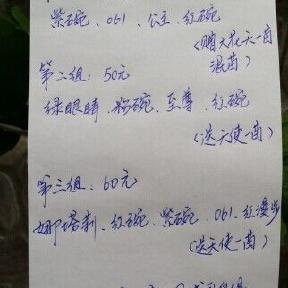 紫碗、061、公主、红碗
(赠天花天一菌
混菌)
第二组:50元
绿眼睛、粉碗、至尊、红碗
(送天使一菌)
第三组:60元
娜塔莉、红碗、紫碗、061、红漫步
(送天使一菌)